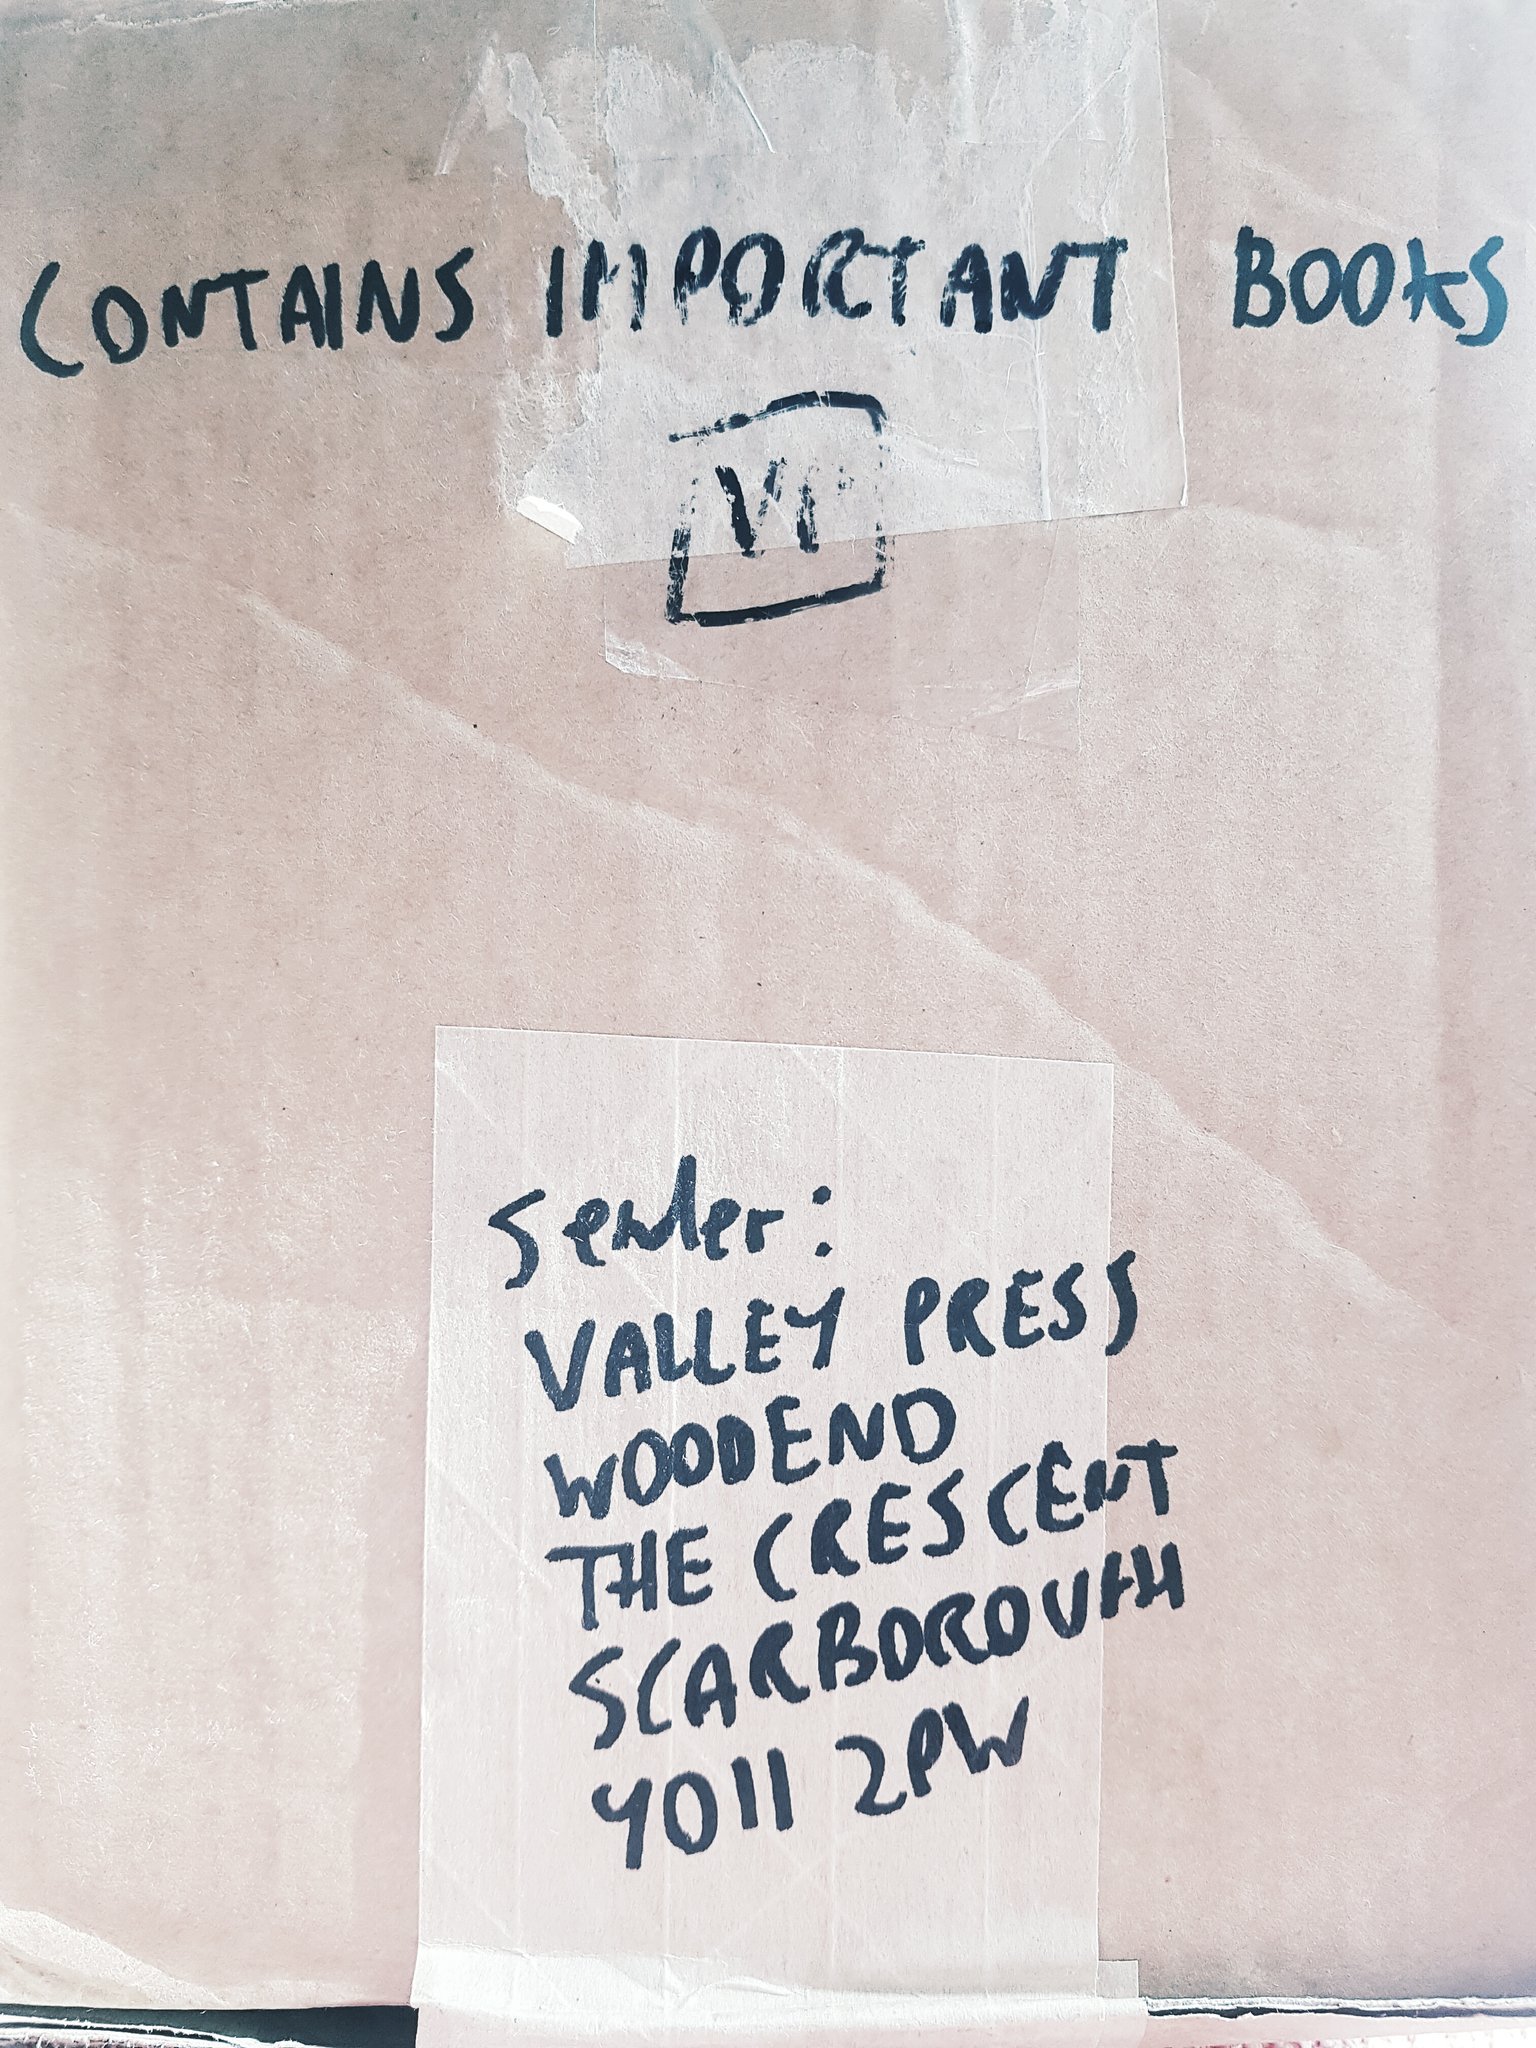 CONTAINS IMPORTANT BOOKS
Sender:
VALLEY PRESS
WOODEND
THE CRESCENT
SCARBOROUGH
YO11 2PW